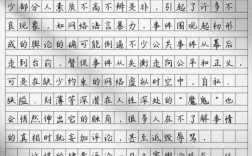 少部分人素质不高不辨是非,引起了许多不
良现象,如网络语言暴力,事件围观起初形
成的舆论的确可能倒逼不少公共事件从幕后
走到台前,督促事件从失衡走向公平和正义,
可是在缺少约束的网络虚拟时空中,自私
缺陷,对善深潜在人性深处的“魔鬼”也
会悄然伸出它的触角,很多人在不了解事情
的真相时就妄加评论,甚至诋毁辱骂,